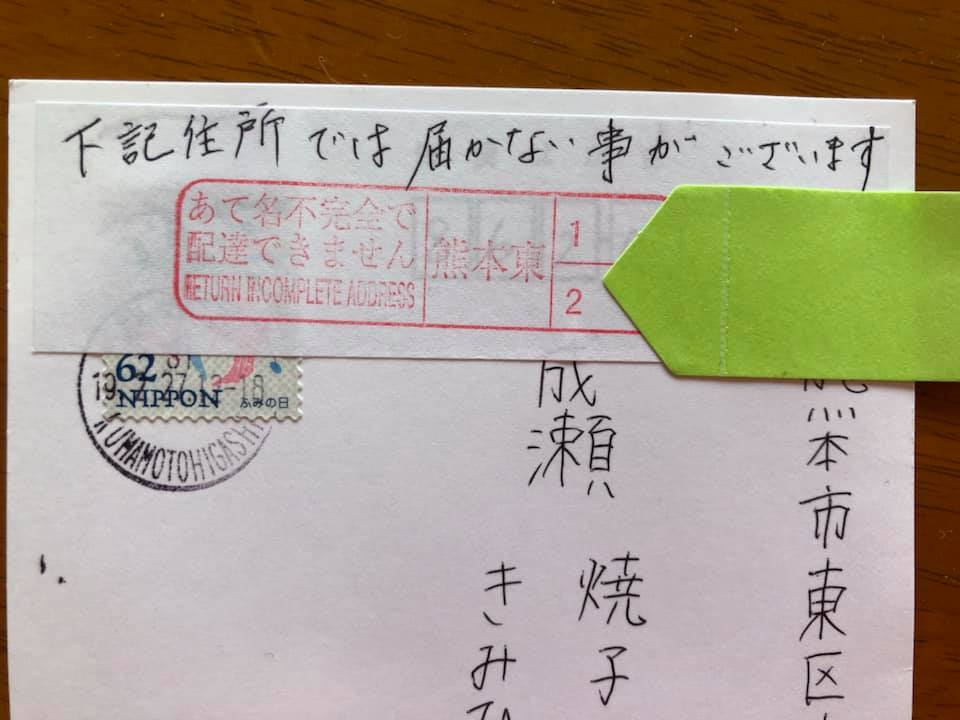 下記住所では届かない事がございます
あて名不完全で
配達できません
RETURN INCOMPLETE ADDRESS
熊本東
1
2
62
NIPPON
ふみの日
19
27
KUMAMOTOHIGASHI
熊本市東区
成瀬
焼子
きみひ